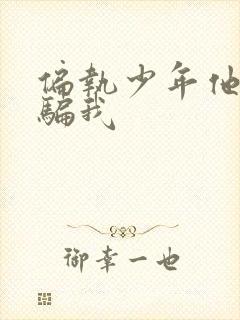 偏執少年他
騙我
御幸一也